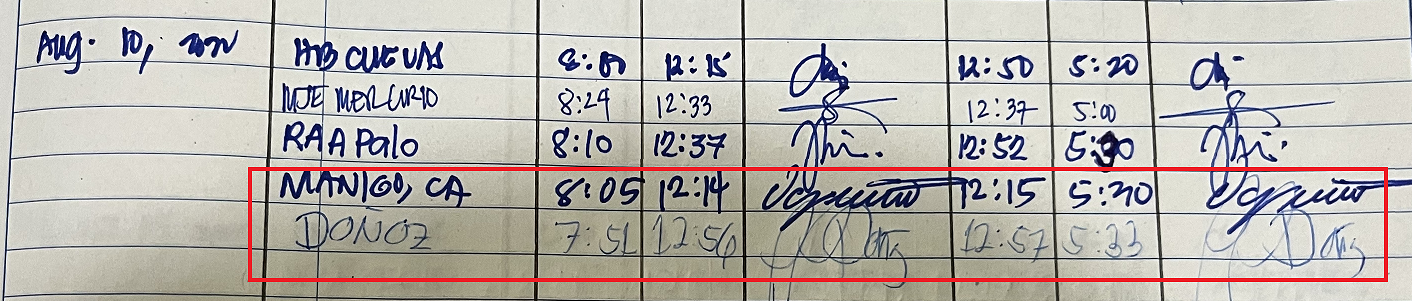 Aug. 10, 2022 HB CUEVAS 8:00 12:15 12:50 5:20
MJE MERCURIO 8:29 12:33 12:37 5:00
RAA Palo 8:10 12:37 12:52 5:30
MANIGO, CA 8:05 12:14 12:15 5:20
DOÑOZ 7:51 12:56 12:57 5:33